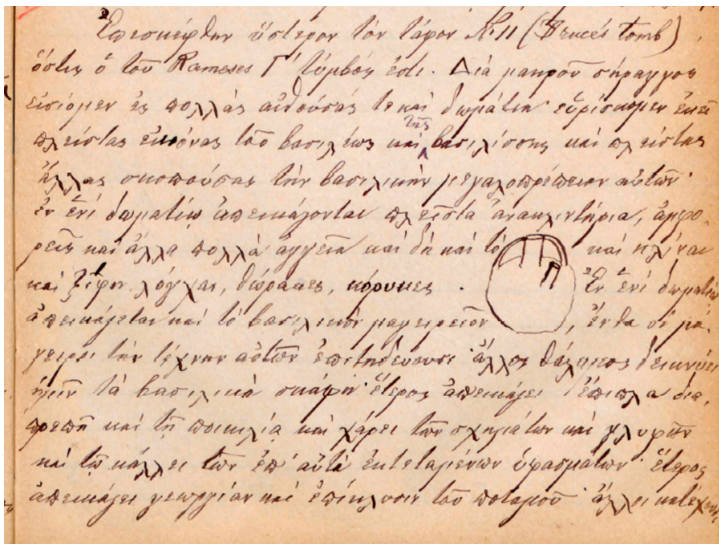 Ἐπεσκέφθην ὕστερον τὸν τάφον N. 11 (Bruce's tomb)
ὅστις ὁ τοῦ Rameses Γ΄ τύμβος ἐστί. Διὰ μακροῦ σήραγγος
εἰσίομεν ἐς πολλὰς αἰθούσας τε καὶ δωμάτια εὑρίσκομεν ἐκεῖ
πλείστας εἰκόνας τοῦ βασιλέως καὶ τῆς βασιλίσσης καὶ πλείστας
ἄλλας σκοπούσας τὴν βασιλικὴν μεγαλοπρέπειαν αὐτῶν·
ἐν ἑνὶ δωματίῳ ἀπεικάζονται πλεῖστα ἀνακλιντήρια, ἀμφο-
ρεῖς καὶ ἄλλα πολλὰ ἀγγεῖα καὶ δὴ καὶ τὸ καὶ κλῖναι
καὶ ξίφη λόγχαι, θώρακες, . Ἐν ἑνὶ δωματίῳ
ἀπεικάζεται καὶ τὸ βασιλικὸν μαγειρεῖον, ἔνθα οἱ μά-
γειροι τὴν τέχνην αὐτῶν ἐπιτηδεύουσι· ἄλλος θάλαμος δεικνύει
ἡμῖν τὰ βασιλικὰ σκάφη· ἕτερος ἀπεικάζει ἔπιπλα δια-
πρεπῆ καὶ τῇ ποικιλίᾳ καὶ χάρει τῶν σχημάτων καὶ γλυφῶν
καὶ τῷ κάλλει τῶν ἐπ' αὐτὰ ἐκτεταμένων ὑφασμάτων· ἕτερος
ἀπεικάζει γεωργίαν καὶ ἐπίκλυσιν τοῦ ποταμοῦ·